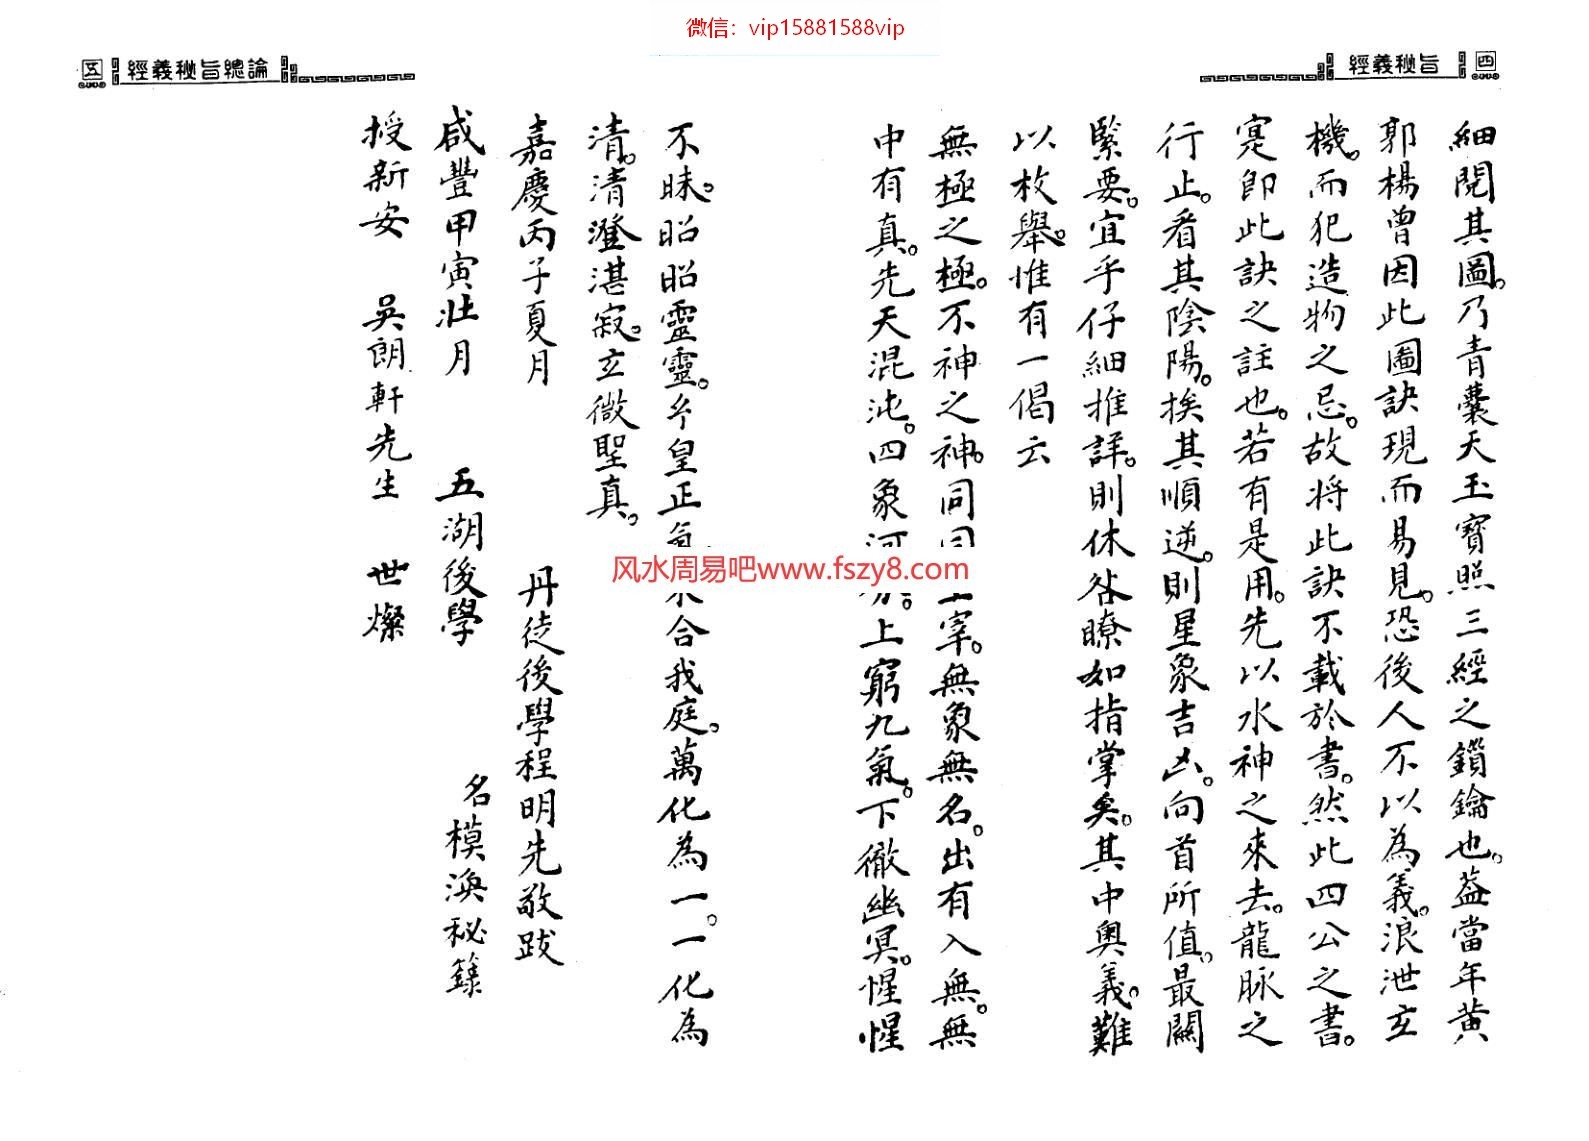 微信：vip15881588vip
四 經義秘旨
細閱其圖。乃青囊天玉寶照三經之鎖鑰也。蓋當年黃
郭楊曾因此圖訣現而易見。恐後人不以為義。浪泄玄
機。而犯造物之忌。故將此訣不載於書。然此四公之書。
寔即此訣之註也。若有是用。先以水神之來去。龍脉之
行止。看其陰陽。挨其順逆。則星象吉凶。向首所值。最關
緊要。宜乎仔細推詳。則休咎瞭如指掌矣。其中奧義。難
以枚舉。惟有一偈云
無極之極。不神之神。同宰。無象無名。出有入無。無
中有真。先天混沌。四象河上窮九氣。下徹幽冥。惺惺
五 經義秘旨總論
不昧。昭昭靈靈。皇正合我庭。萬化為一。一化為
清。清澄湛寂。玄微聖真。
嘉慶丙子夏月 丹徒後學程明先敬跋
咸豐甲寅壯月 五湖後學 名模渙秘錄
授新安 吳朗軒先生 世燦
风水周易吧www.fszy8.com